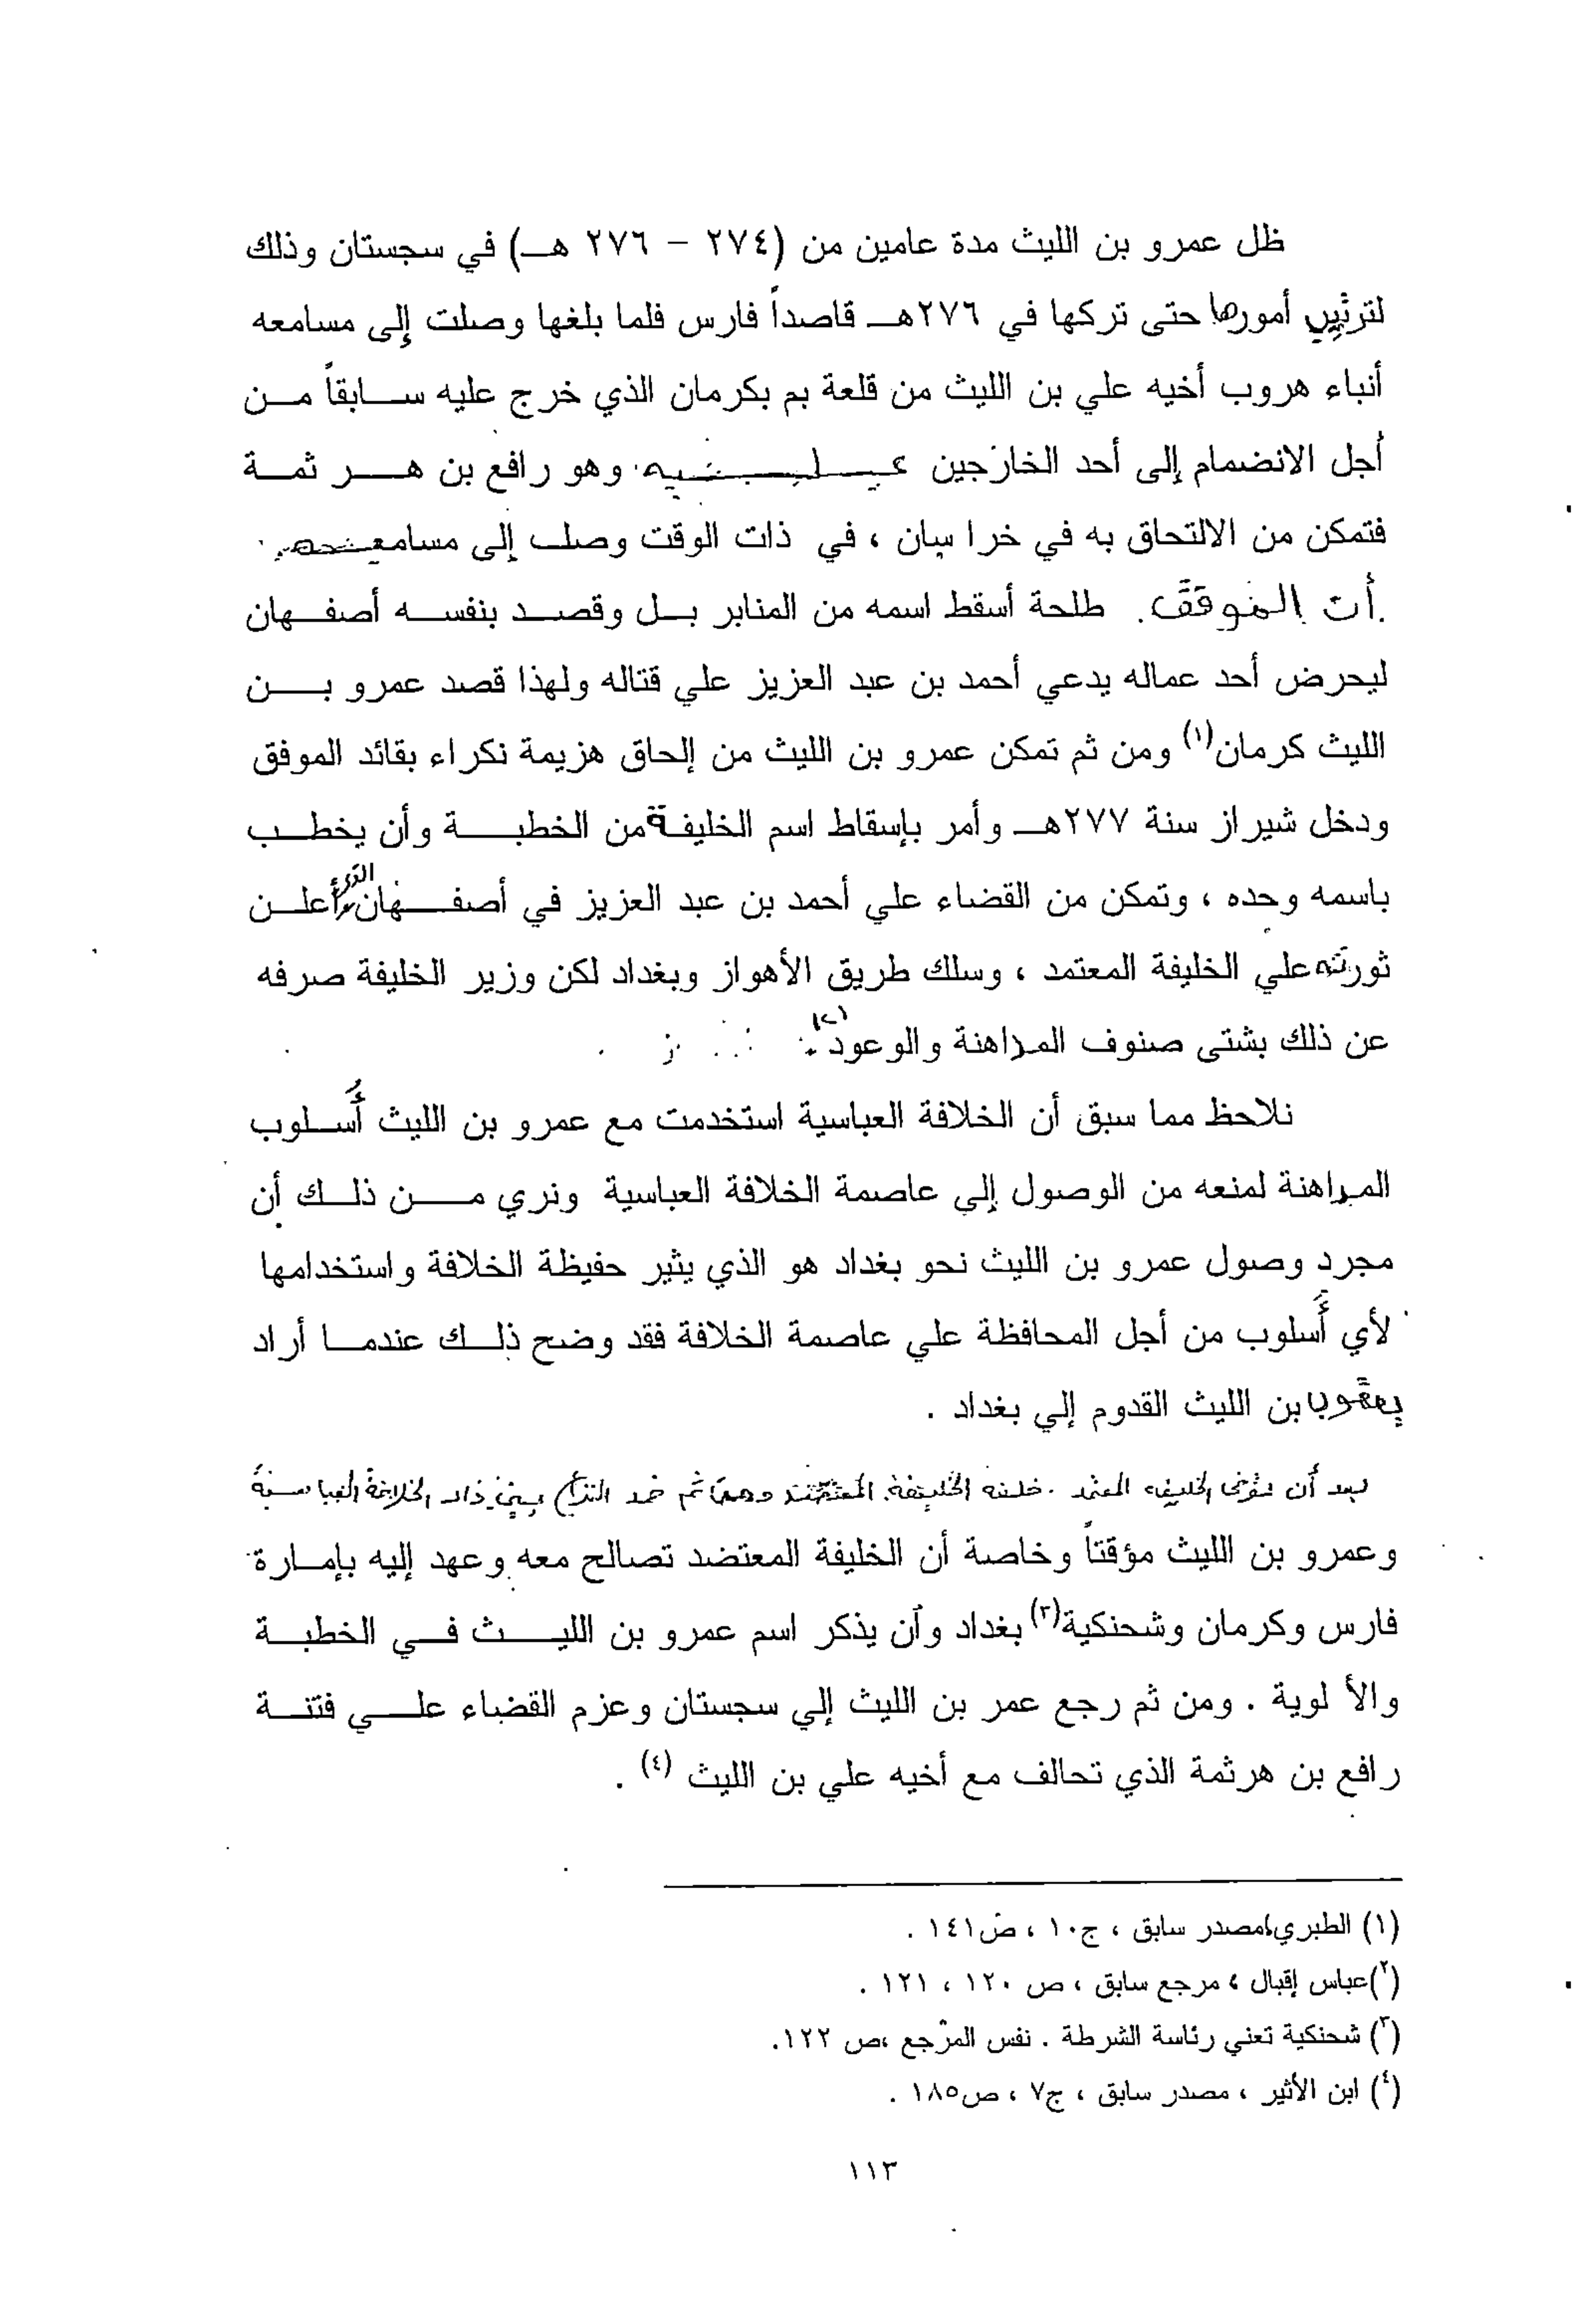 ظل عمرو بن الليث مدة عامين من (٢٧٤ – ٢٧٦ هـ) في سجستان وذلك
لترتيب أمورها حتى تركها في ٢٧٦هـ قاصداً فارس فلما بلغها وصلت إلى مسامعه
أنباء هروب أخيه علي بن الليث من قلعة بم بكرمان الذي خرج عليه سابقاً من
أجل الانضمام إلى أحد الخارجين عليه وهو رافع بن هر ثمة
فتمكن من الالتحاق به في خرا سان ، في ذات الوقت وصلت إلى مسامعه
أن الموفق طلحة أسقط اسمه من المنابر بل وقصد بنفسه أصفهان
ليحرض أحد عماله يدعي أحمد بن عبد العزيز علي قتاله ولهذا قصد عمرو بن
الليث كرمان(١) ومن ثم تمكن عمرو بن الليث من إلحاق هزيمة نكراء بقائد الموفق
ودخل شيراز سنة ٢٧٧هـ وأمر بإسقاط اسم الخليفة من الخطبة وأن يخطب
باسمه وحده ، وتمكن من القضاء علي أحمد بن عبد العزيز في أصفهان الذي أعلن
ثورته علي الخليفة المعتمد ، وسلك طريق الأهواز وبغداد لكن وزير الخليفة صرفه
عن ذلك بشتى صنوف المداهنة والوعود(٢).
نلاحظ مما سبق أن الخلافة العباسية استخدمت مع عمرو بن الليث أُسلوب
المداهنة لمنعه من الوصول إلي عاصمة الخلافة العباسية ونري من ذلك أن
مجرد وصول عمرو بن الليث نحو بغداد هو الذي يثير حفيظة الخلافة واستخدامها
لأي أُسلوب من أجل المحافظة علي عاصمة الخلافة فقد وضح ذلك عندما أراد
يعقوب بن الليث القدوم إلي بغداد .
بعد أن توفى الخليفة المعتمد خلفه الخليفة المعتضد ثم خمد النزاع بين الخلافة العباسية
وعمرو بن الليث مؤقتاً وخاصة أن الخليفة المعتضد تصالح معه وعهد إليه بإمارة
فارس وكرمان وشحنكية(٣) بغداد وأن يذكر اسم عمرو بن الليث في الخطبة
والأ لوية . ومن ثم رجع عمر بن الليث إلي سجستان وعزم القضاء علي فتنة
رافع بن هرثمة الذي تحالف مع أخيه علي بن الليث (٤) .
(١) الطبري،مصدر سابق ، ج١٠ ، ص١٤١ .
(٢)عباس إقبال ، مرجع سابق ، ص ١٢٠ ، ١٢١ .
(٣) شحنكية تعني رئاسة الشرطة . نفس المرجع ،ص ١٢٢.
(٤) ابن الأثير ، مصدر سابق ، ج٧ ، ص١٨٥ .
١١٣